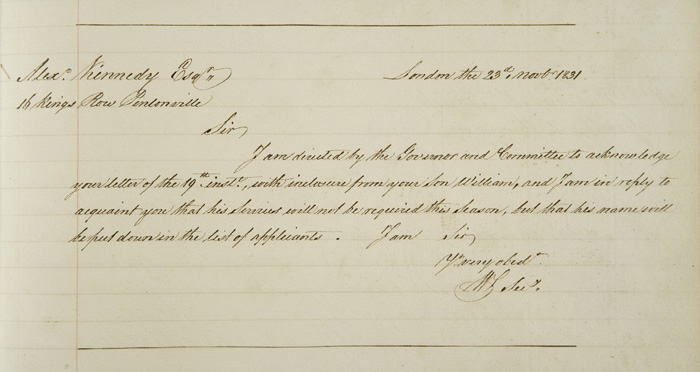 Alexr. Kennedy Esqre.
London the 23rd. Novbr 1831
16 Kings Row Pentonville
Sir
I am directed by the Governor and Committee to acknowledge
your letter of the 19th. instt., with inclosure from your Son William, and I am in reply to
acquaint you that his Services will not be required this Season, but that his name will
be put down in the list of applicants. I am Sir
Yr. very obedt.
Secy.